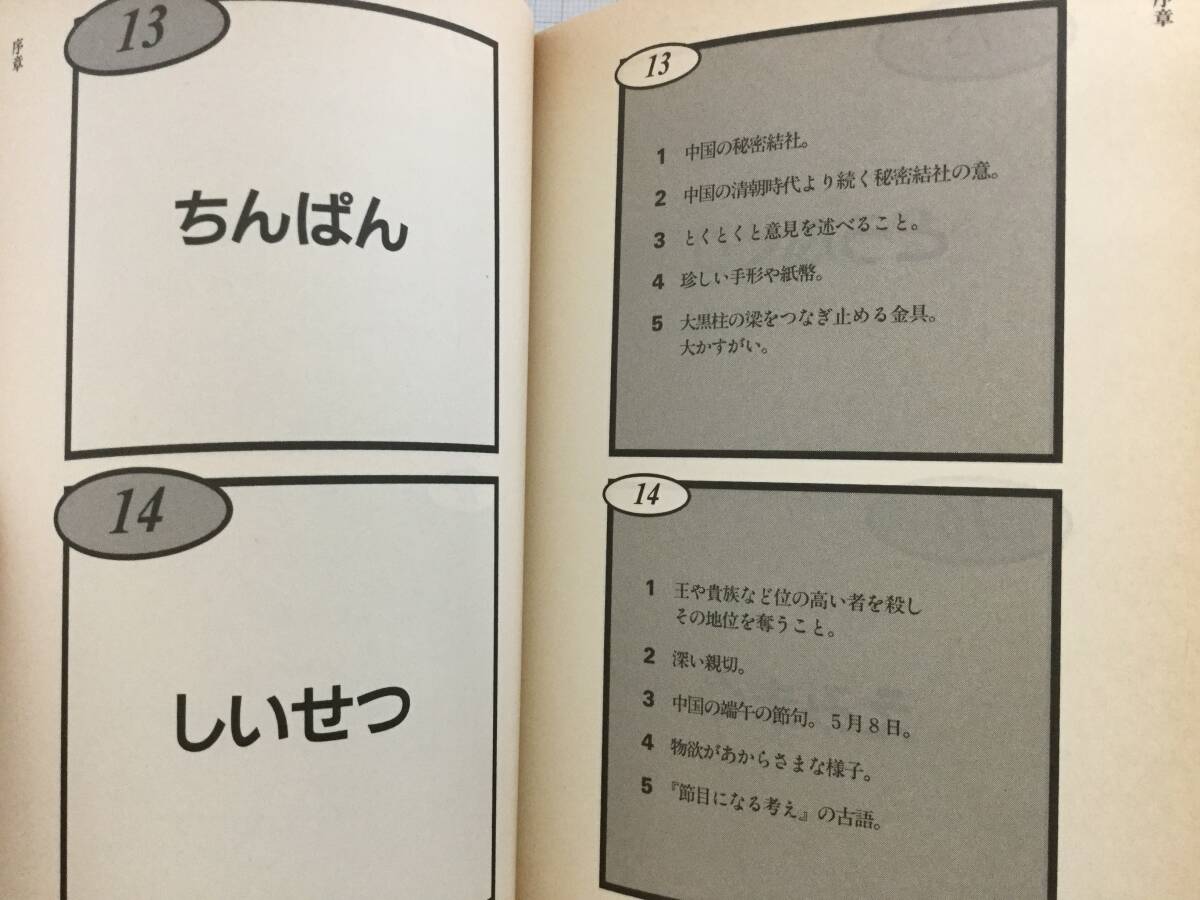 序章
13
ちんぱん
14
しいせつ
序章
13
1 中国の秘密結社。
2 中国の清朝時代より続く秘密結社の意。
3 とくとくと意見を述べること。
4 珍しい手形や紙幣。
5 大黒柱の梁をつなぎ止める金具。
大かすがい。
14
1 王や貴族など位の高い者を殺し
その地位を奪うこと。
2 深い親切。
3 中国の端午の節句。5月8日。
4 物欲があからさまな様子。
5 『節目になる考え』の古語。